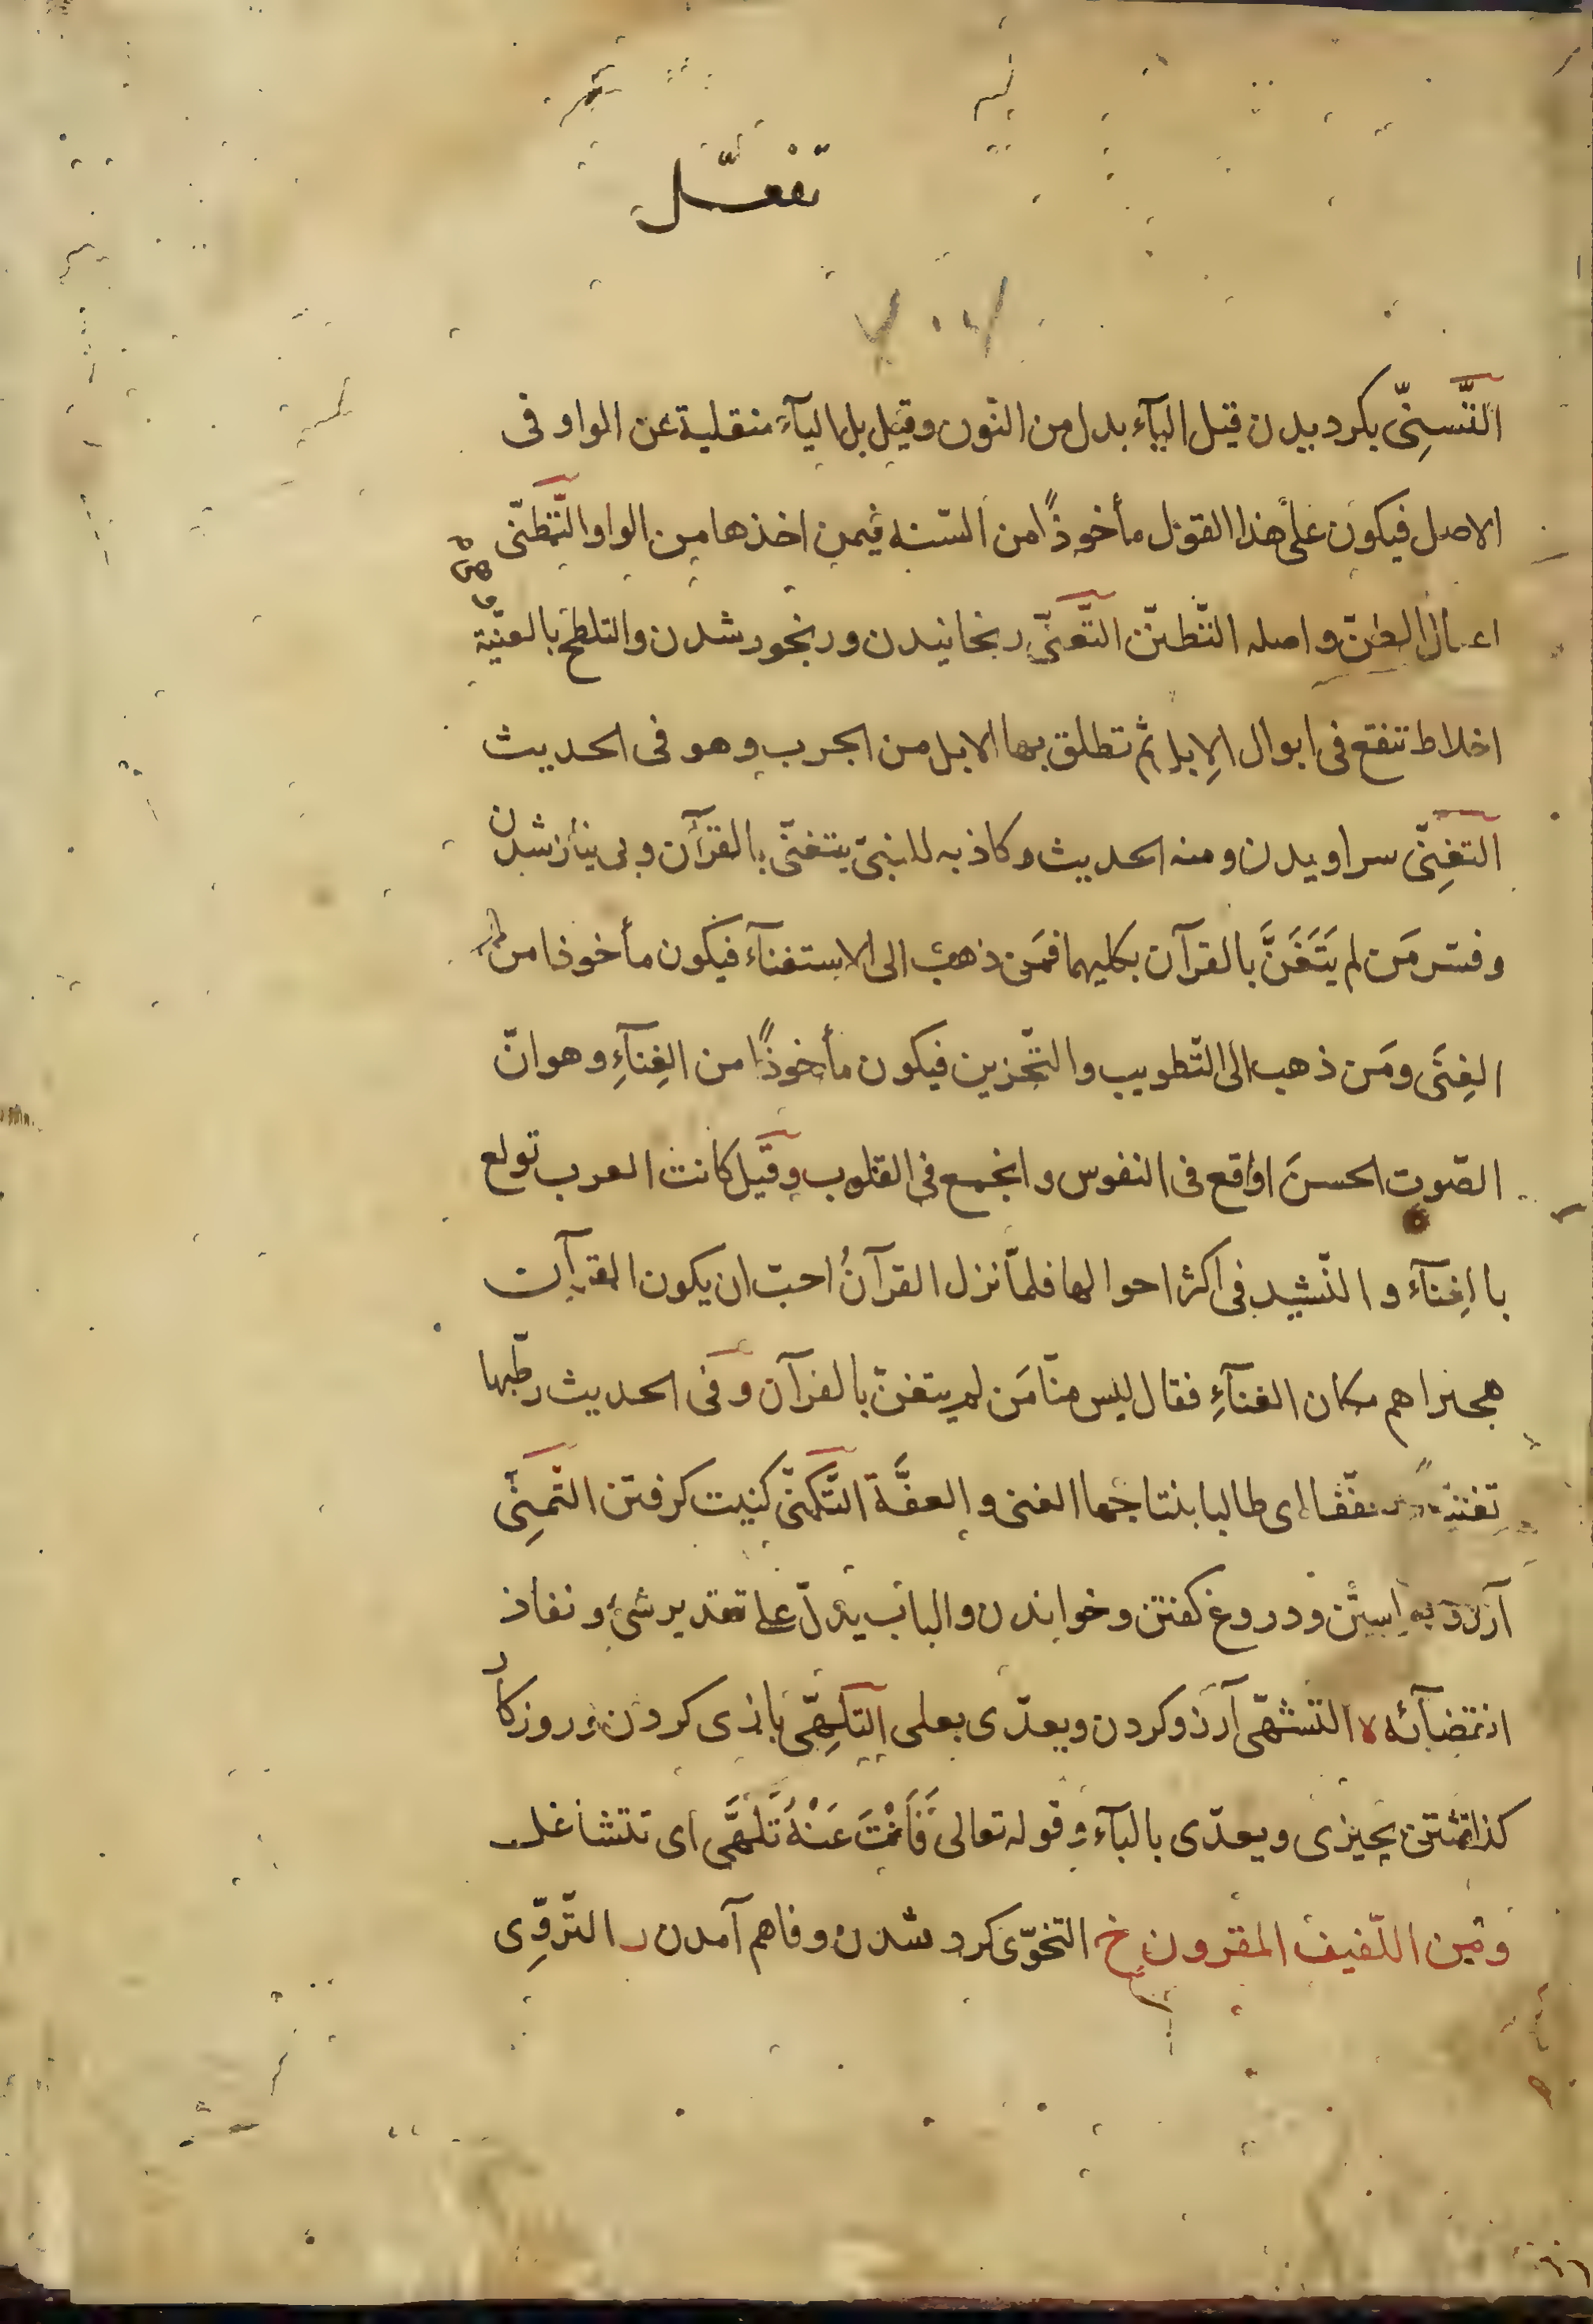 تفعّل
٧٠٧
التَّسنِّى بكرديدن قيل اليآء بدل من النّون وقيل بل اليآء منقلبة عن الواو فى
الاصل فيكون على هذا القول مأخوذًا من السّنه فيمن اخذها من الواو التَّظنّى
اعمال الظنّ واصله التّظنّن التَّعنّى رنجانيدن ورنجور شدن والتلطخ بالعنيّة
وهى
اخلاط تنقع فى ابوال الاِبل ثم تطلق بها الابل من الجرب وهو فى الحديث
التغنِّى سراويدن ومنه الحديث وكاذنه للنبىّ يتغنّى بالقرآن وبى نياز شدن
وفسّر مَن لم يَتَغَنَّ بالقرآن بكليهما فمَن ذهب الى الاستغنآء فيكون مأخوذا من
الغِنَى ومَن ذهب الى التّطريب والتّحزين فيكون مأخوذًا من الغِنآءِ وهو انّ
الصّوت الحسنَ اوقع فى النفوس وانجمع فى القلوب وقيل كانت العرب تولع
بالغِنآء والنّشيد فى اكثر احوالها فلمّا نزل القرآنُ احبّ ان يكون القرآن
هجيراهم مكان الغنآءِ فقال ليس منّا مَن لم يتغنّ بالقرآن وفى الحديث ربطها
تغنيًا وتعفّفا اى طالبا بنتاجها الغنى والعفَّة التَّكنّى كنيت كرفتن التّمنِّى
آرزو به استن ودروغ كفتن وخواندن والباب يدلّ على تقدير شئ ونفاذ
القضآئه التّشهّى آرزو كردن ويعدّى بعلى التلهِّى بازى كردن وروزكار
كذاشتن بچيزى ويعدّى بالبآء وقوله تعالى فَأَنْتَ عَنْهُ تَلَهَّى اى تتشاغل
ومن اللّفيف المقرون خ التخوّى كرد شدن وفاهم آمدن ر التّروِّى